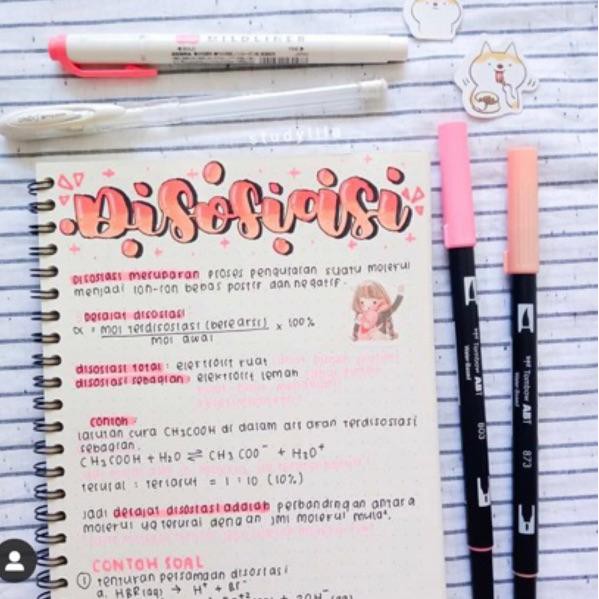 MILDLINER
studylila
Disosiasi
Disosiasi merupakan proses penguraian suatu molekul
menjadi ion-ion bebas positif dan negatif.
Derajat disosiasi
α = mol terdisosiasi (bereaksi) x 100%
mol awal
disosiasi total : elektrolit kuat
disosiasi sebagian : elektrolit lemah
contoh
larutan cuka CH3COOH di dalam air akan terdisosiasi
sebagian.
CH3COOH + H2O ⇌ CH3COO⁻ + H3O⁺
terurai : terlarut = 1 : 10 (10%)
jadi derajat disosiasi adalah perbandingan antara
molekul yg terurai dengan jml molekul mula².
CONTOH SOAL
① tentukan persamaan disosiasi
a. HBr (aq) → H⁺ + Br⁻
Tombow ABT
Water-Based
803
Tombow ABT
Water-Based
873